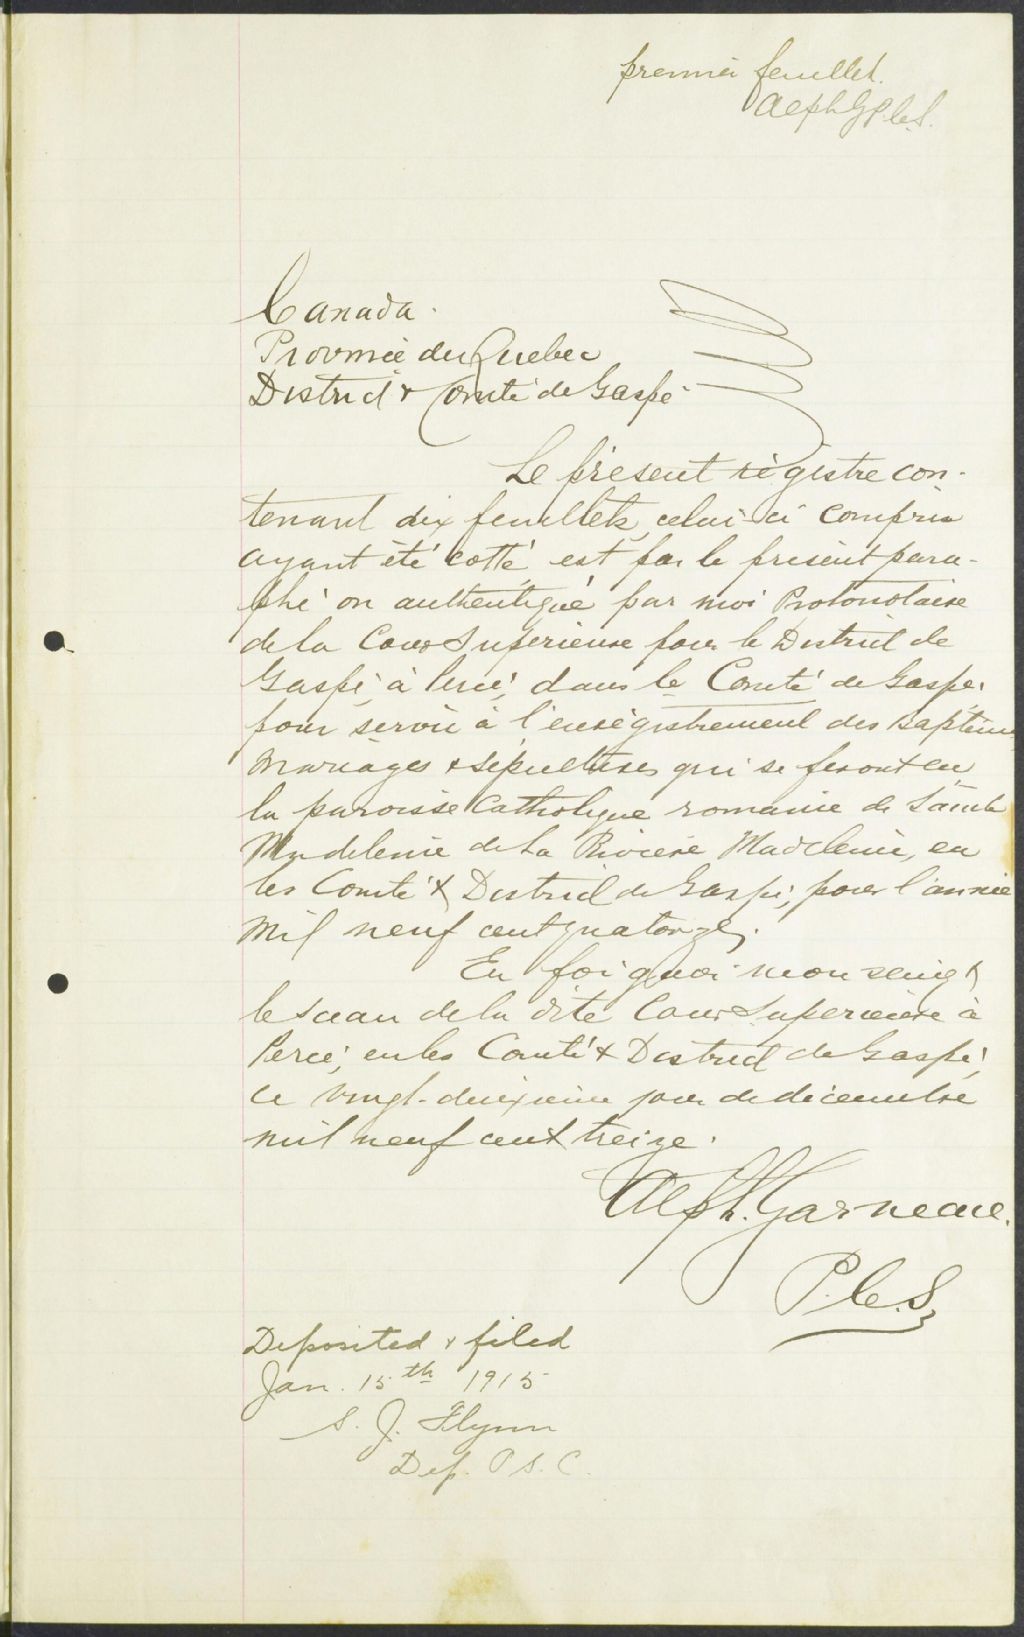 premier feuillet.
Alph G P.C.S.
Canada.
Province du Quebec
District & Comté de Gaspé
Le présent régistre con-
tenant dix feuillets, celui-ci compris
ayant été cotté est par le présent para-
phé on authentiqué par moi Protonotaire
de la Cour Superieure pour le District de
Gaspé, à Percé, dans le Comté de Gaspé,
pour servir à l'enségistrement des Baptêmes
Mariages & Sépultures qui se feront en
la paroisse Catholique romaine de Sainte
Madeleine de la Riviere Madeleine, en
les Comté & District de Gaspé, pour l'année
mil neuf cent quatorze.
En foi quoi mon seing &
le sceau de la dite Cour Superieure à
Percé, en les Comté & District de Gaspé,
ce vingt-deuxieme jour de décembre
mil neuf cent treize.
Alph. Garneau.
P.C.S
Deposited & filed
Jan. 15th 1915
S. J. Flynn
Dep. P S. C.